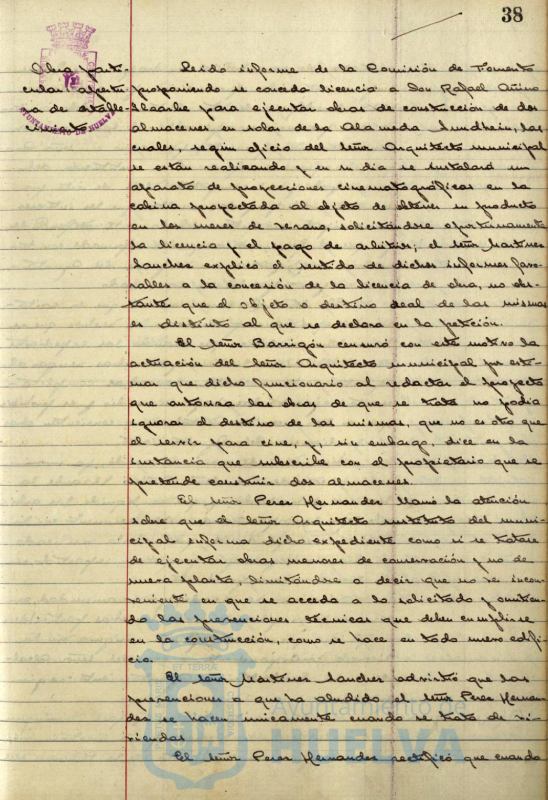 38
Obra parti-
cular apertu
ra de estable-
cimiento
AYUNTAMIENTO DE HUELVA
Leido informe de la Comisión de Fomento
proponiendo se conceda licencia a Don Rafael
para ejecutar obras de construcción de dos
almacenes en solar de la Alameda Sundheim, las
cuales, según oficio del señor Arquitecto municipal
se están realizando y en su día se instalará un
aparato de proyecciones cinematográficas en la
cabina proyectada al objeto de obtener su producto
en los meses de verano, solicitándose oportunamente
la licencia y el pago de arbitrios; el señor Martinez
Sanchez explicó el sentido de dichos informes favo-
rables a la concesión de la licencia de obra, no obs-
tante que el objeto o destino de las mismas
es distinto al que se declara en la petición.
El señor Barrigón censuró con este motivo la
actuación del señor Arquitecto municipal por esti-
mar que dicho funcionario al redactar el proyecto
que autoriza las obras de que se trata no podia
ignorar el destino de las mismas, que no es otro que
el servir para cine, y, sin embargo, dice en la
instancia que subscribe con el propietario que se
pretende construir dos almacenes.
El señor Perez Hernandez llamó la atención
sobre que el señor Arquitecto sustituto del muni-
cipal informa dicho expediente como si se tratase
de ejecutar obras menores de conservación y no de
nueva planta, limitándose a decir que no ve incon-
veniente en que se acceda a lo solicitado y omitien-
do las prevenciones técnicas que deben cumplirse
en la construcción, como se hace en todo nuevo edifi-
cio.
El señor Martinez Sanchez advirtió que las
prevenciones a que ha aludido el señor Perez Hernan-
dez se hacen unicamente cuando se trata de vi-
viendas
El señor Perez Hernandez rectificó que cuando
Ayuntamiento de
HUELVA